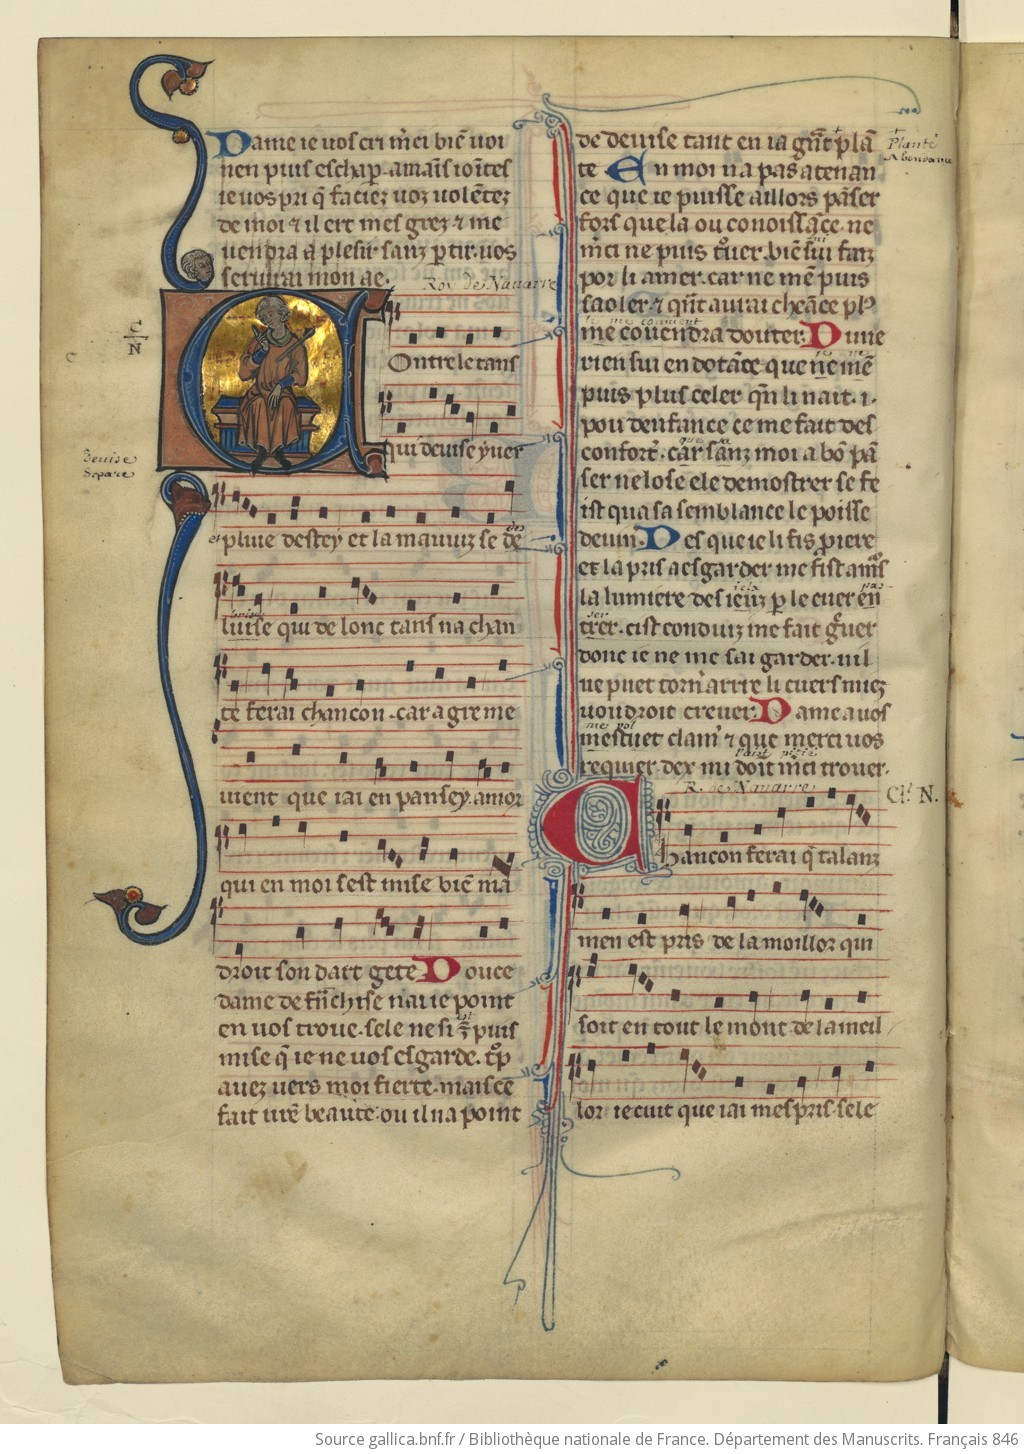 Dame ie uos cri m̄ci biē uoi
nen puis eschap. amais iointes
ie uos pri q̄ faciez uoz uolētez
de moi ⁊ il ert mes grez ⁊ me
uendra a plesir sanz ꝑtir. uos
seruirai mon ae.
Roy de Nauarre
C
N
Contre le tans
qui deuise yuer
Deuise
Separe
et pluie destey et la mauuiz se de
luise qui de lonc tans na chan
te ferai chancon. car a gre me
uient que iai en pansey. amor
qui en moi sest mise biē ma
droit son dart gete Douce
dame de frāchise nai ie point
en uos troue. sele ne si puis
mise q̄ ie ne uos esgarde. trop
auez uers moi fierte. mais ce
fait ure beaute. ou il na point
de deuise tant en ia grāt plā
te En moi na pas atenan
ce que ie puisse aillors pāser
fors que la ou conoissāce. ne
m̄ci ne puis trouer. biē fui faiz
por li amer. car ne mē puis
saoler. ⁊ qn̄t aurai cheāce plus
me couendra douter. Dune
rien sui en dotāce que ne mē
puis plus celer qn̄ li nait. i.
pou denfance ce me fait des
confort. car sanz moi a bō pā
ser ne lose ele demostrer se fe
ist qua sa semblance le poisse
deuin. Des que ie li fis priere
et la pris a esgarder me fist amors
la lumiere des ieuz ꝑ le cuer en
trer. cist conduiz me fait greuer
donc ie ne me sai garder. nil
ne puet torn̄ arrire li cuers miez
uoudroit creuer. Dame a uos
mestuet clamer ⁊ que merci uos
requier. dex mi doit m̄ci trouer.
Planté
Abondance
R. de Nauarre
Ch. N.
Chancon ferai q̄ talanz
men est pris de la moillor qui
soit en tout le mont de la meil
lor ie cuit que iai mespris. sele
Source gallica.bnf.fr / Bibliothèque nationale de France. Département des Manuscrits. Français 846